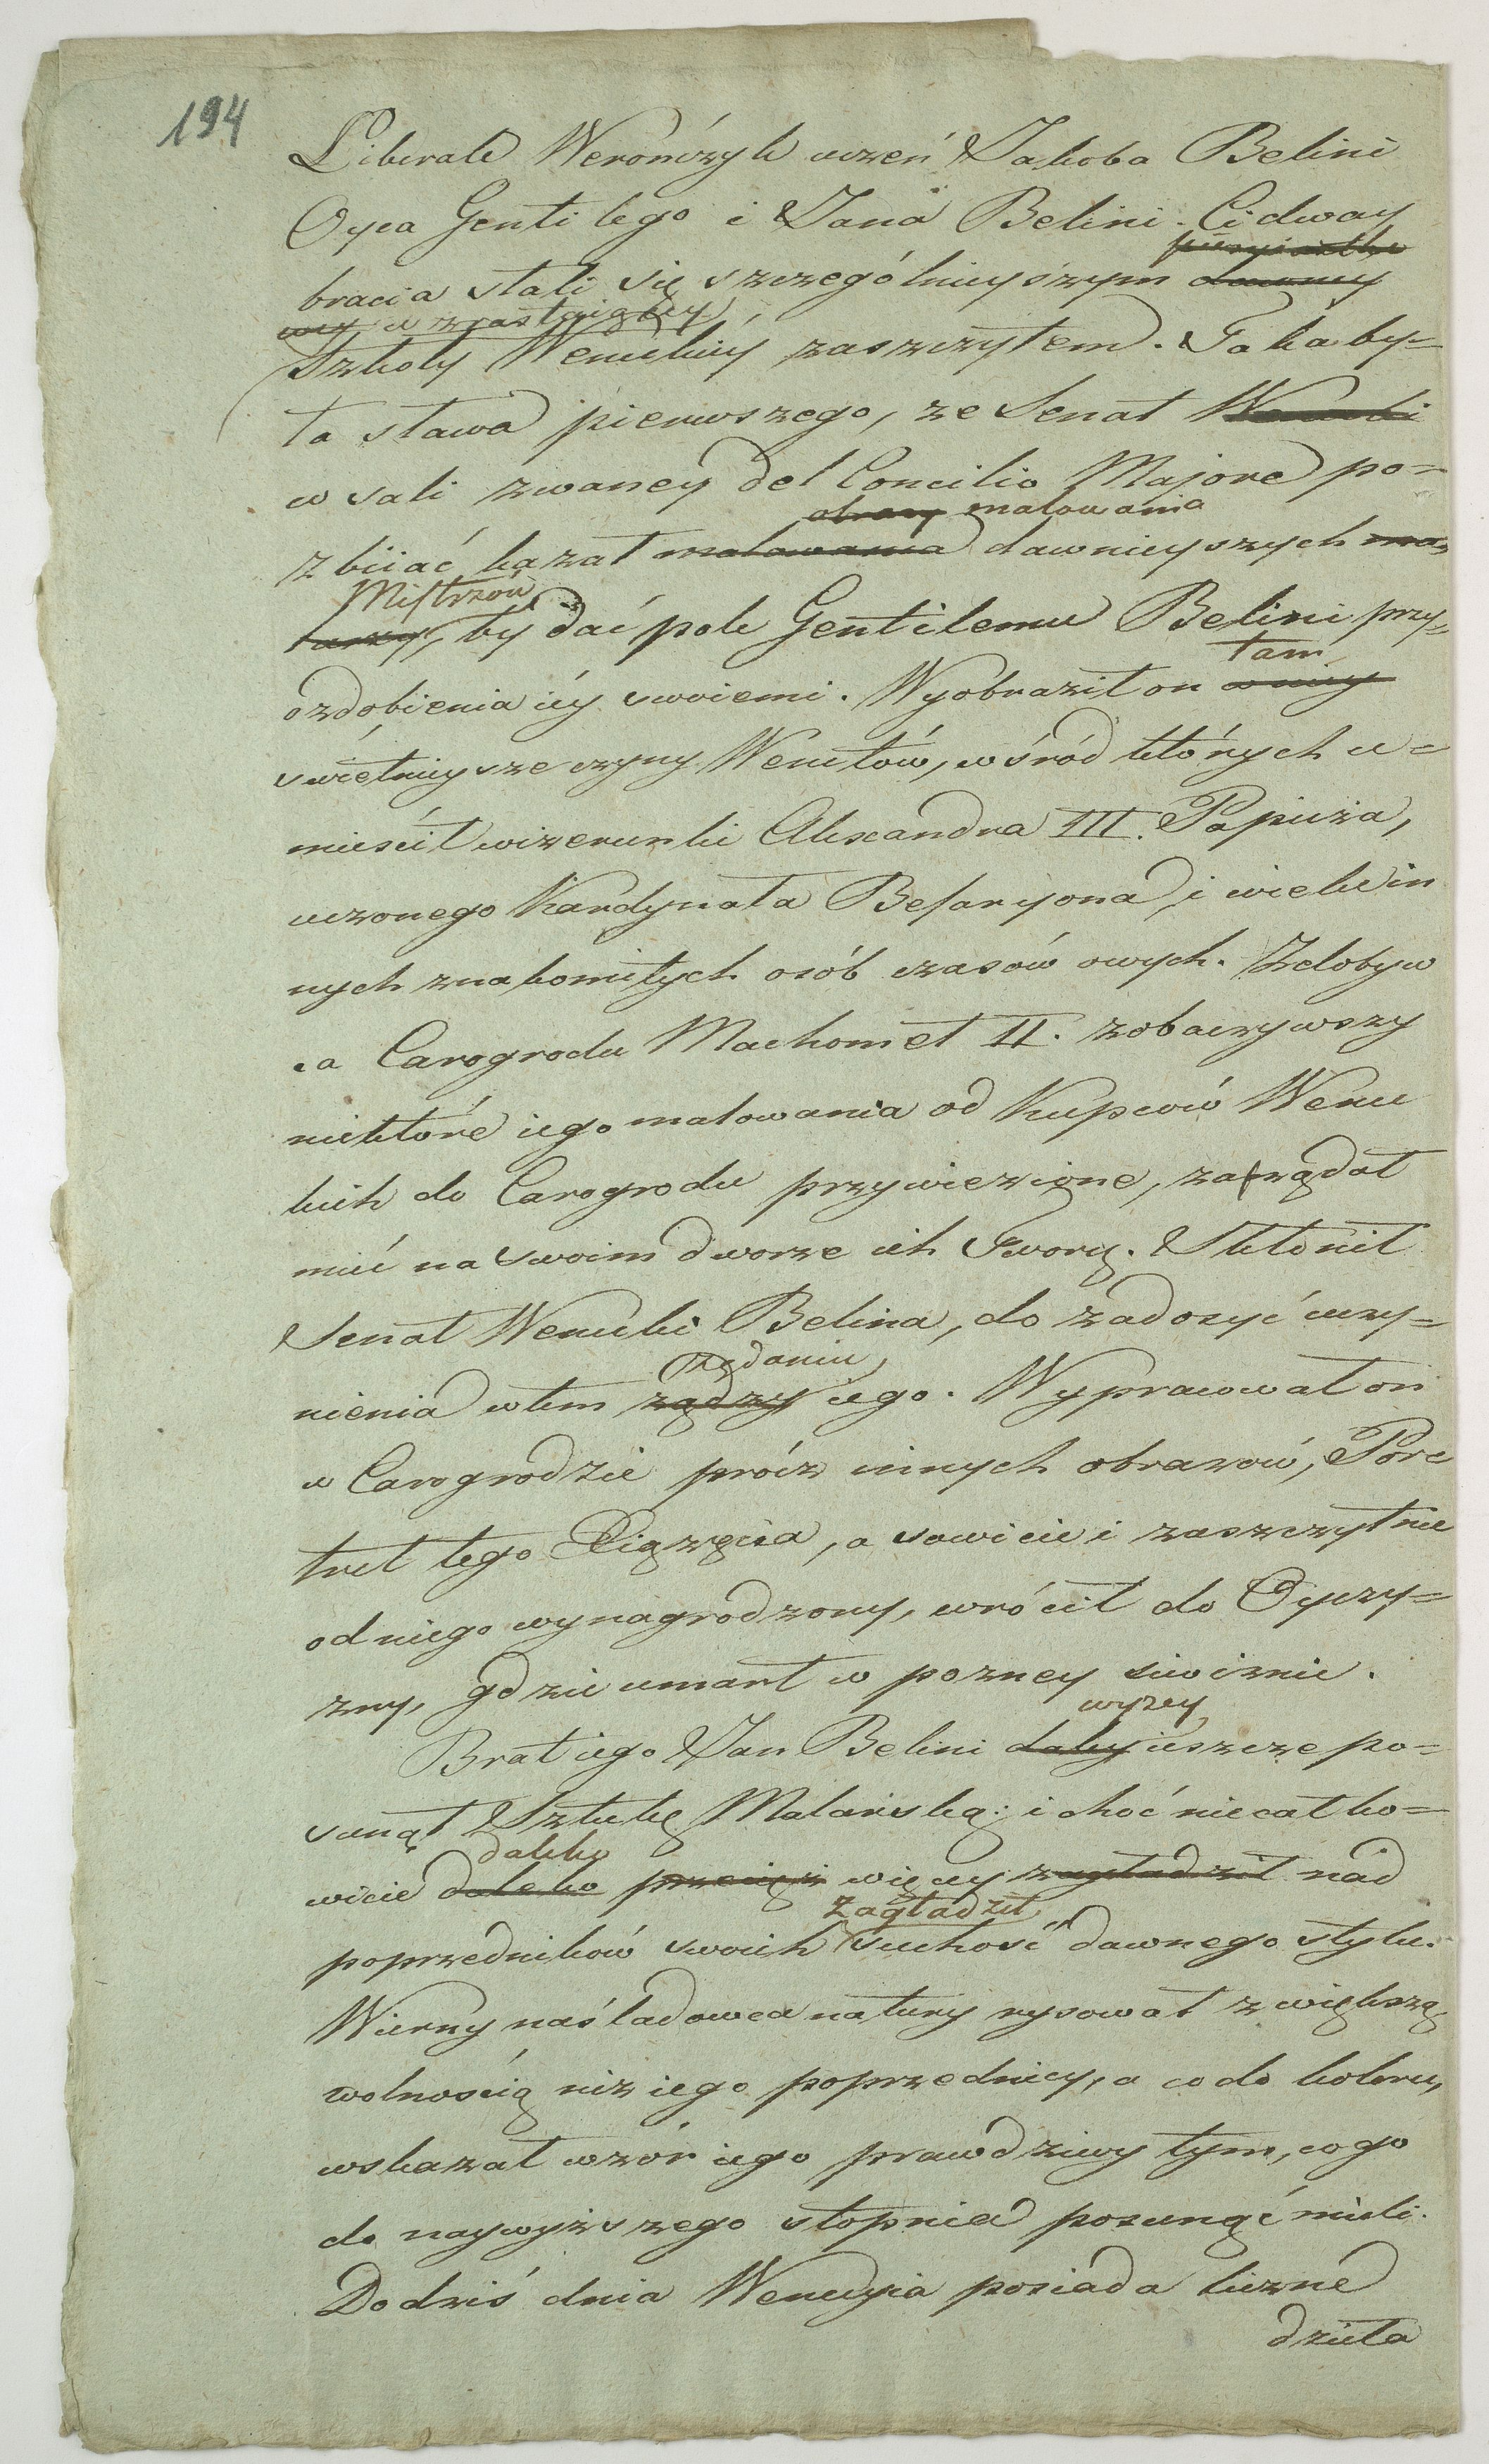 194
Liberale Werończyk uczeń Jakoba Belini
Oyca Gentilego i Jana Belini. Ci dway
bracia stali się szczególnieyszym dawney
wzrastaiącey
Szkoły Weneckiéy zaszczytem. Taka by=
ła sława pierwszego, że Senat Wenecki
w sali zwaney del Concilio Majore po=
obrazy malowania
zbiiać kazał malowania dawnieyszych ma=
Mistrzow
larzy, by dać pole Gentilemu Belini przy=
tam
ozdobienia iéy swoiemi. Wyobraził on w niey
swiétnieysze czyny Wenetów, wśród których u=
mieścił wizerunki Alexandra III. Papieża,
uczonego Kardynała Bessaryona, i wielu in
nych znakomitych osób czasów owych. Zdobyw
ca Carogrodu Machomet II. zobaczywszy
niektóre iego malowania od Kupców Wenec
kich do Carogrodu przywiezione, zażądał
mieć na swoim dworze ich Twórcę. Skłonił
Senat Wenecki Belina, do zadosyć uczy=
żądaniu
nienia w tem żądzy iego. Wypracował on
w Carogrodzie prócz innych obrazów, Por
tret tego Xiążęcia, a sowicie i zaszczytnie
od niego wynagrodzony, wrócił do Oyczy=
zny, gdzie umarł w pozney siwiznie.
wyżey
Brat iego Jan Belini daley ieszcze po=
sunął Sztukę Malarską: i choć niecałko=
daleko
wicie daleko przecięż więcey zagładził nad
zagładził
poprzedników swoich suchość dawnego stylu.
Wierny naśladowca natury rysował z większą
wolnością niż iego poprzednicy, a co do koloru,
wskazał wzór iego prawdziwy tym, co go
do naywyższego stopnia posunąć mieli.
Do dziś dnia Wenecyia posiada liczne
dzieła